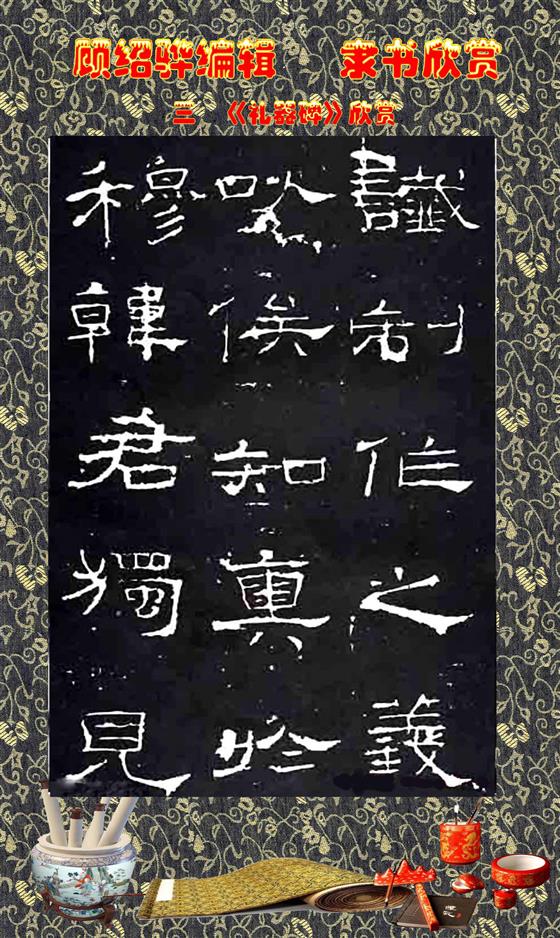 顾绍骅编辑 隶书欣赏
三 《礼器碑》欣赏
讖制作之義
以俟知奧於
穆韓君獨見